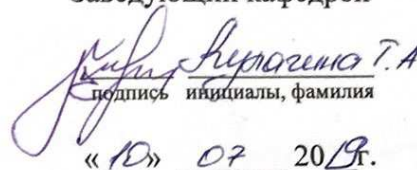 Заведующий кафедрой
Т.А
подпись инициалы, фамилия
«10» 07 2019г.